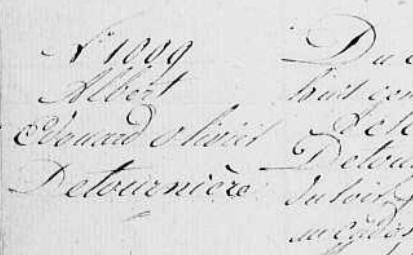 N° 1009
Albert
Edouard olivier
Detournière
Du
huit
Detour
du soir